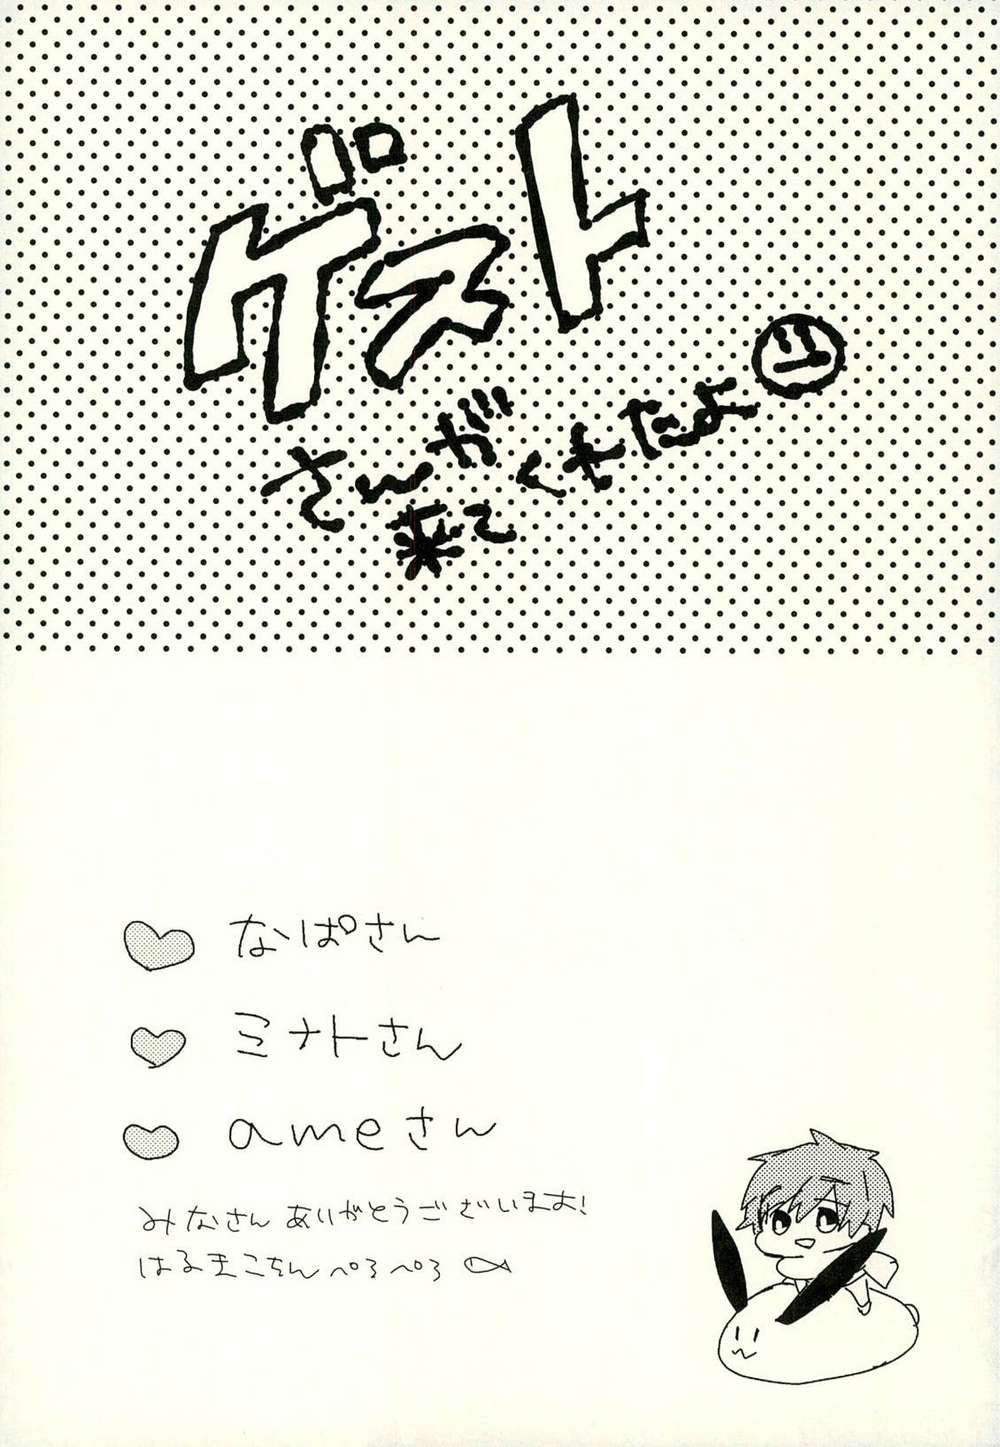 ゲスト
さんが
来てくれたよ
なぱさん
ミナトさん
ameさん
みなさんありがとうございます!
はるまこちんぺろぺろ